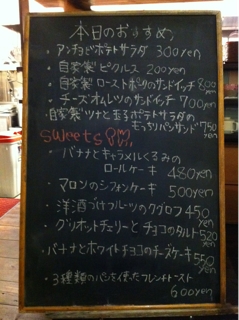 本日のおすすめ
・アンチョビポテトサラダ 300yen
・自家製 ピクルス 200yen
・自家製 ローストポークのサンドイッチ 800yen
・チーズオムレツのサンドイッチ 700yen
・自家製ツナと玉子ポテトサラダの
もっちりパンサンド 750yen
sweets
・バナナとキャラメルくるみの
ロールケーキ 480yen
・マロンのシフォンケーキ 500yen
・洋酒づけフルーツのクグロフ 450yen
・グリオットチェリーとチョコのタルト 520yen
・バナナとホワイトチョコのチーズケーキ 550yen
・3種類のパンを使ったフレンチトースト
600yen